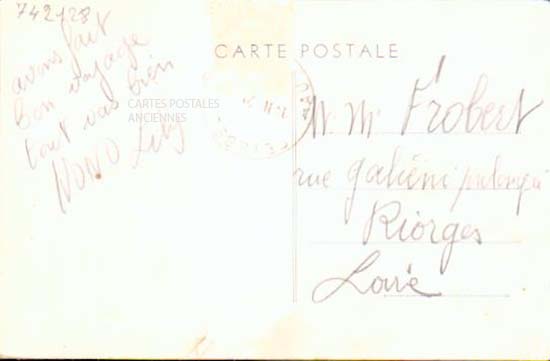 742128
CARTE POSTALE
avons fait
bon voyage
tout vas bien
NONO Lily
CARTES POSTALES
ANCIENNES
M. Mr Frobert
rue Galiéni prolongé
Riorges
Loire